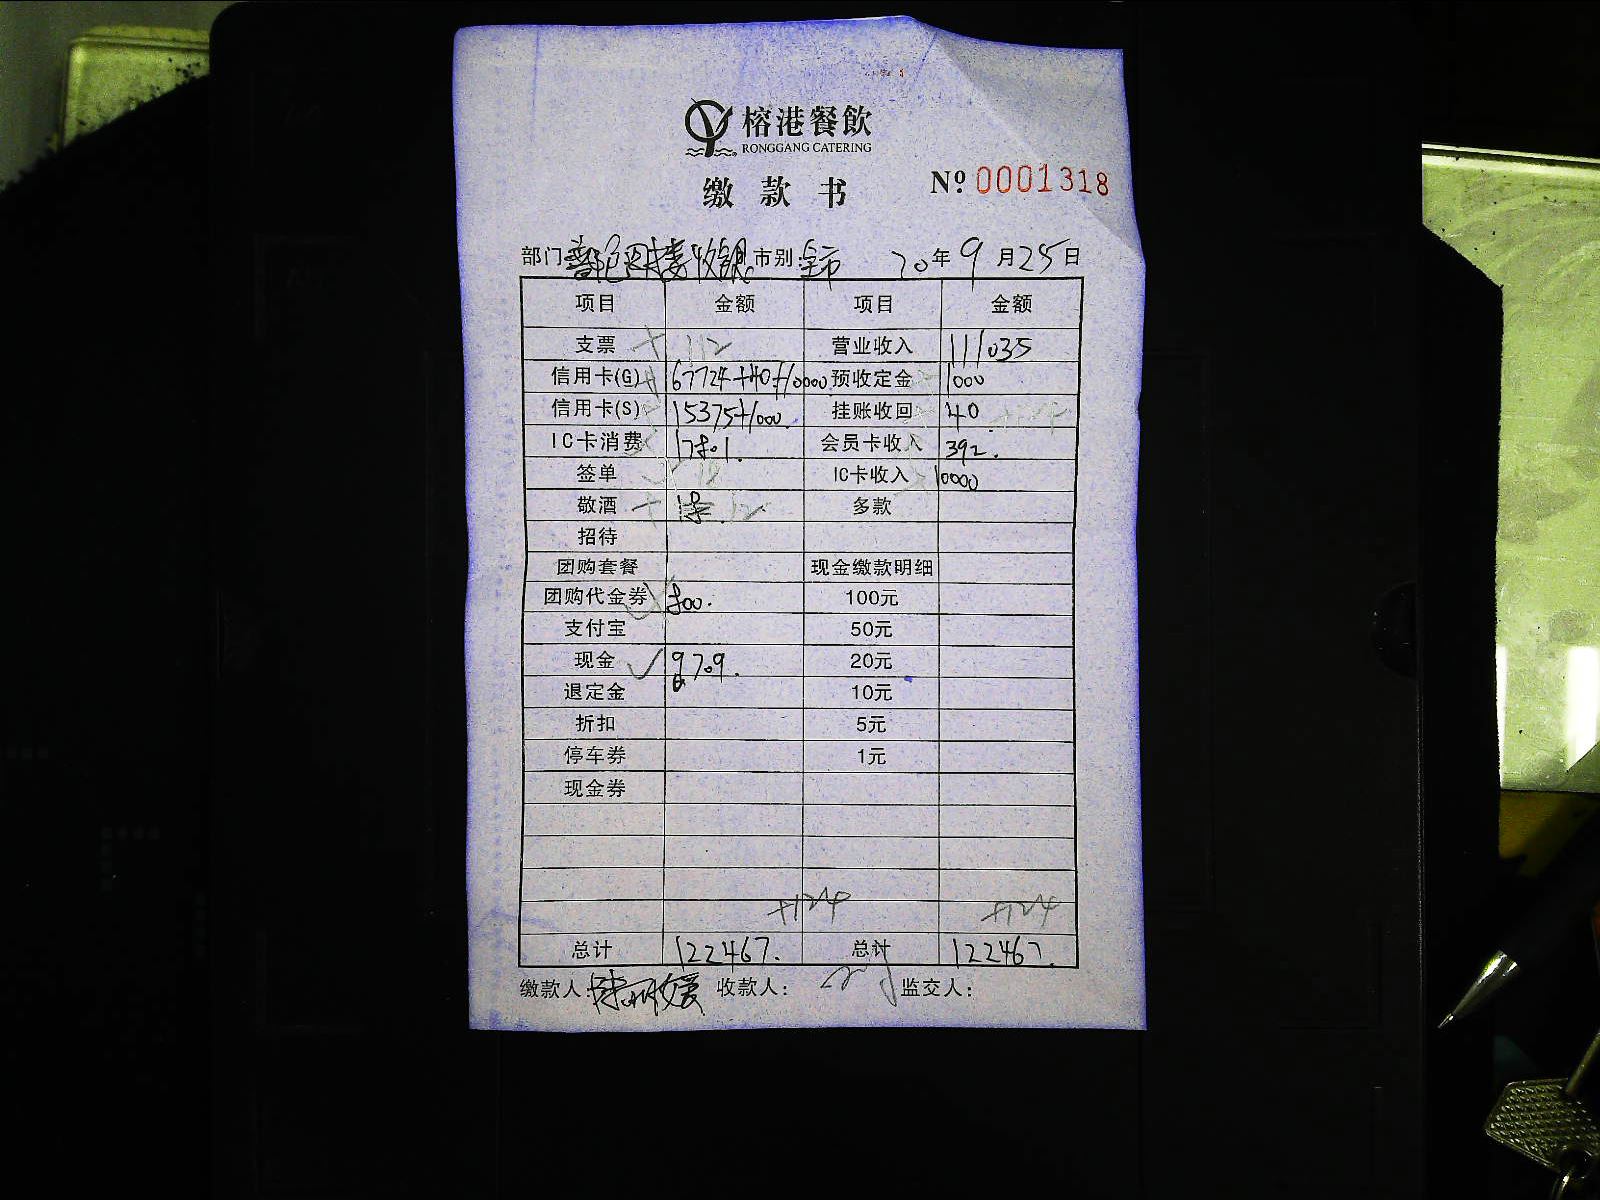 榕港餐飲
RONGGANG CATERING
缴款书
Nº 0001318
部门 收银 市别: 全市 20年9月25日
项目 金额 项目 金额
支票 112 营业收入 111035
信用卡(G) 67724+40+10000 预收定金 1000
信用卡(S) 15375+1000. 挂账收回 40 +124
IC卡消费 17801. 会员卡收入 392.
签单 IC卡收入 10000
敬酒 多款
招待
团购套餐 现金缴款明细
团购代金券 800. 100元
支付宝 50元
现金 9709. 20元
退定金 10元
折扣 5元
停车券 1元
现金券
+124 +124
总计 122467. 总计 122467.
缴款人: 收款人: 监交人: